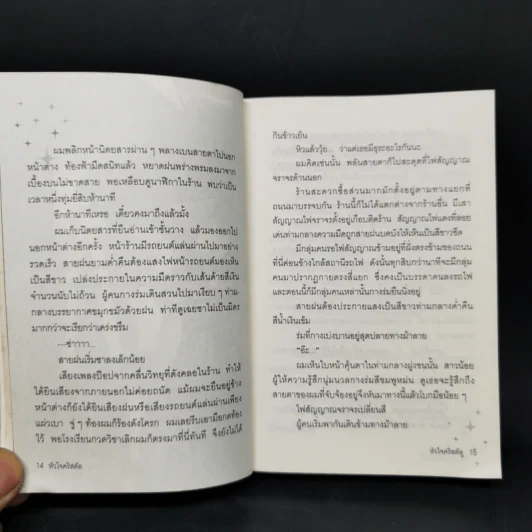 ผมพลิกหน้านิตยสารผ่าน ๆ พลางเบนสายตาไปนอก
หน้าต่าง ท้องฟ้ามืดสนิทแล้ว หยาดฝนพร่างพรมลงมาจาก
เบื้องบนไม่ขาดสาย พอเหลือบดูนาฬิกาในร้าน พบว่าเป็น
เวลาหนึ่งทุ่มยี่สิบห้านาที
อีกห้านาทีเหรอ เดี๋ยวคงมาถึงแล้วมั้ง
ผมเก็บนิตยสารที่ยืนอ่านเข้าชั้นวาง แล้วมองออกไป
นอกหน้าต่างอีกครั้ง หน้าร้านมีรถยนต์แล่นผ่านไปมาอย่าง
รวดเร็ว สายฝนยามค่ำคืนต้องแสงไฟหน้ารถยนต์มองเห็น
เป็นสีขาว เปล่งประกายในความมืดราวกับเส้นด้ายสีเงิน
จำนวนนับไม่ถ้วน ผู้คนกางร่มเดินสวนไปมาเงียบๆ ท่ามกลาง
บรรยากาศขมุกขมัวด้วยฝน ท่าทีดูเฉยชาไม่เป็นมิตร
มากกว่าจะเรียกว่าเคร่งขรึม
---ซ่าาาา...
สายฝนเริ่มซาลงเล็กน้อย
เสียงเพลงป็อปจากคลื่นวิทยุที่ดังคลอในร้าน ทำให้
ได้ยินเสียงจากภายนอกไม่ค่อยถนัด แม้ผมจะยืนอยู่ข้าง
หน้าต่างก็ยังได้ยินเสียงฝนหรือเสียงรถยนต์แล่นผ่านเพียง
แผ่วเบา จู่ ๆ ท้องผมก็ร้องดังโครก ผมเลยรีบเอามือกดท้อง
ไว้ พอโรงเรียนกวดวิชาเลิกผมก็ตรงมาที่นี่ทันที จึงยังไม่ได้
14 หัวใจคริสตัล
กินข้าวเย็น
หิวแล้ววุ้ย... ว่าแต่เธอมีธุระอะไรกันนะ
ผมคิดเช่นนั้น พลันสายตาก็ไปสะดุดที่ไฟสัญญาณ
จราจรด้านนอก
ร้านสะดวกซื้อส่วนมากมักตั้งอยู่ตามทางแยกที่
ถนนมาบรรจบกัน ร้านนี้ก็ไม่ได้แตกต่างจากร้านอื่น มีเสา
สัญญาณไฟจราจรตั้งอยู่เกือบติดร้าน สัญญาณไฟแดงที่ลอย
เด่นท่ามกลางความมืดถูกสายฝนบดบังให้เห็นเป็นสีขาวซีด
มีกลุ่มคนรอไฟสัญญาณข้ามอยู่ที่ฝั่งตรงข้ามของถนน
ที่นี่ค่อนข้างใกล้สถานีรถไฟ ดังนั้นทุกสิบกว่านาทีจะมีกลุ่ม
คนมาปรากฏกายตรงสี่แยก ซึ่งคงเป็นบรรดาคนลงรถไฟ
และตอนนี้ก็มีกลุ่มคนเหล่านั้นกางร่มยืนนิ่งอยู่
สายฝนต้องประกายแสงเป็นสีขาวท่ามกลางค่ำคืน
สีน้ำเงินเข้ม
ร่มที่กางเบ่งบานอยู่สุดปลายทางม้าลาย
"อ๊ะ..."
ผมเห็นใบหน้าคุ้นตาในท่ามกลางฝูงชนนั้น สาวน้อย
ผู้ให้ความรู้สึกนุ่มนวลกางร่มสีชมพูหม่น ดูเธอจะรู้สึกถึง
สายตาของผมที่จับจ้องอยู่จึงหันมาทางนี้แล้วโบกมือน้อย ๆ
ไฟสัญญาณจราจรเปลี่ยนสี
ผู้คนเริ่มพากันเดินข้ามทางม้าลาย
หัวใจคริสตัล 15